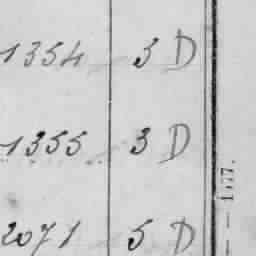 1354 3 D
1355 3 D
2071 5 D